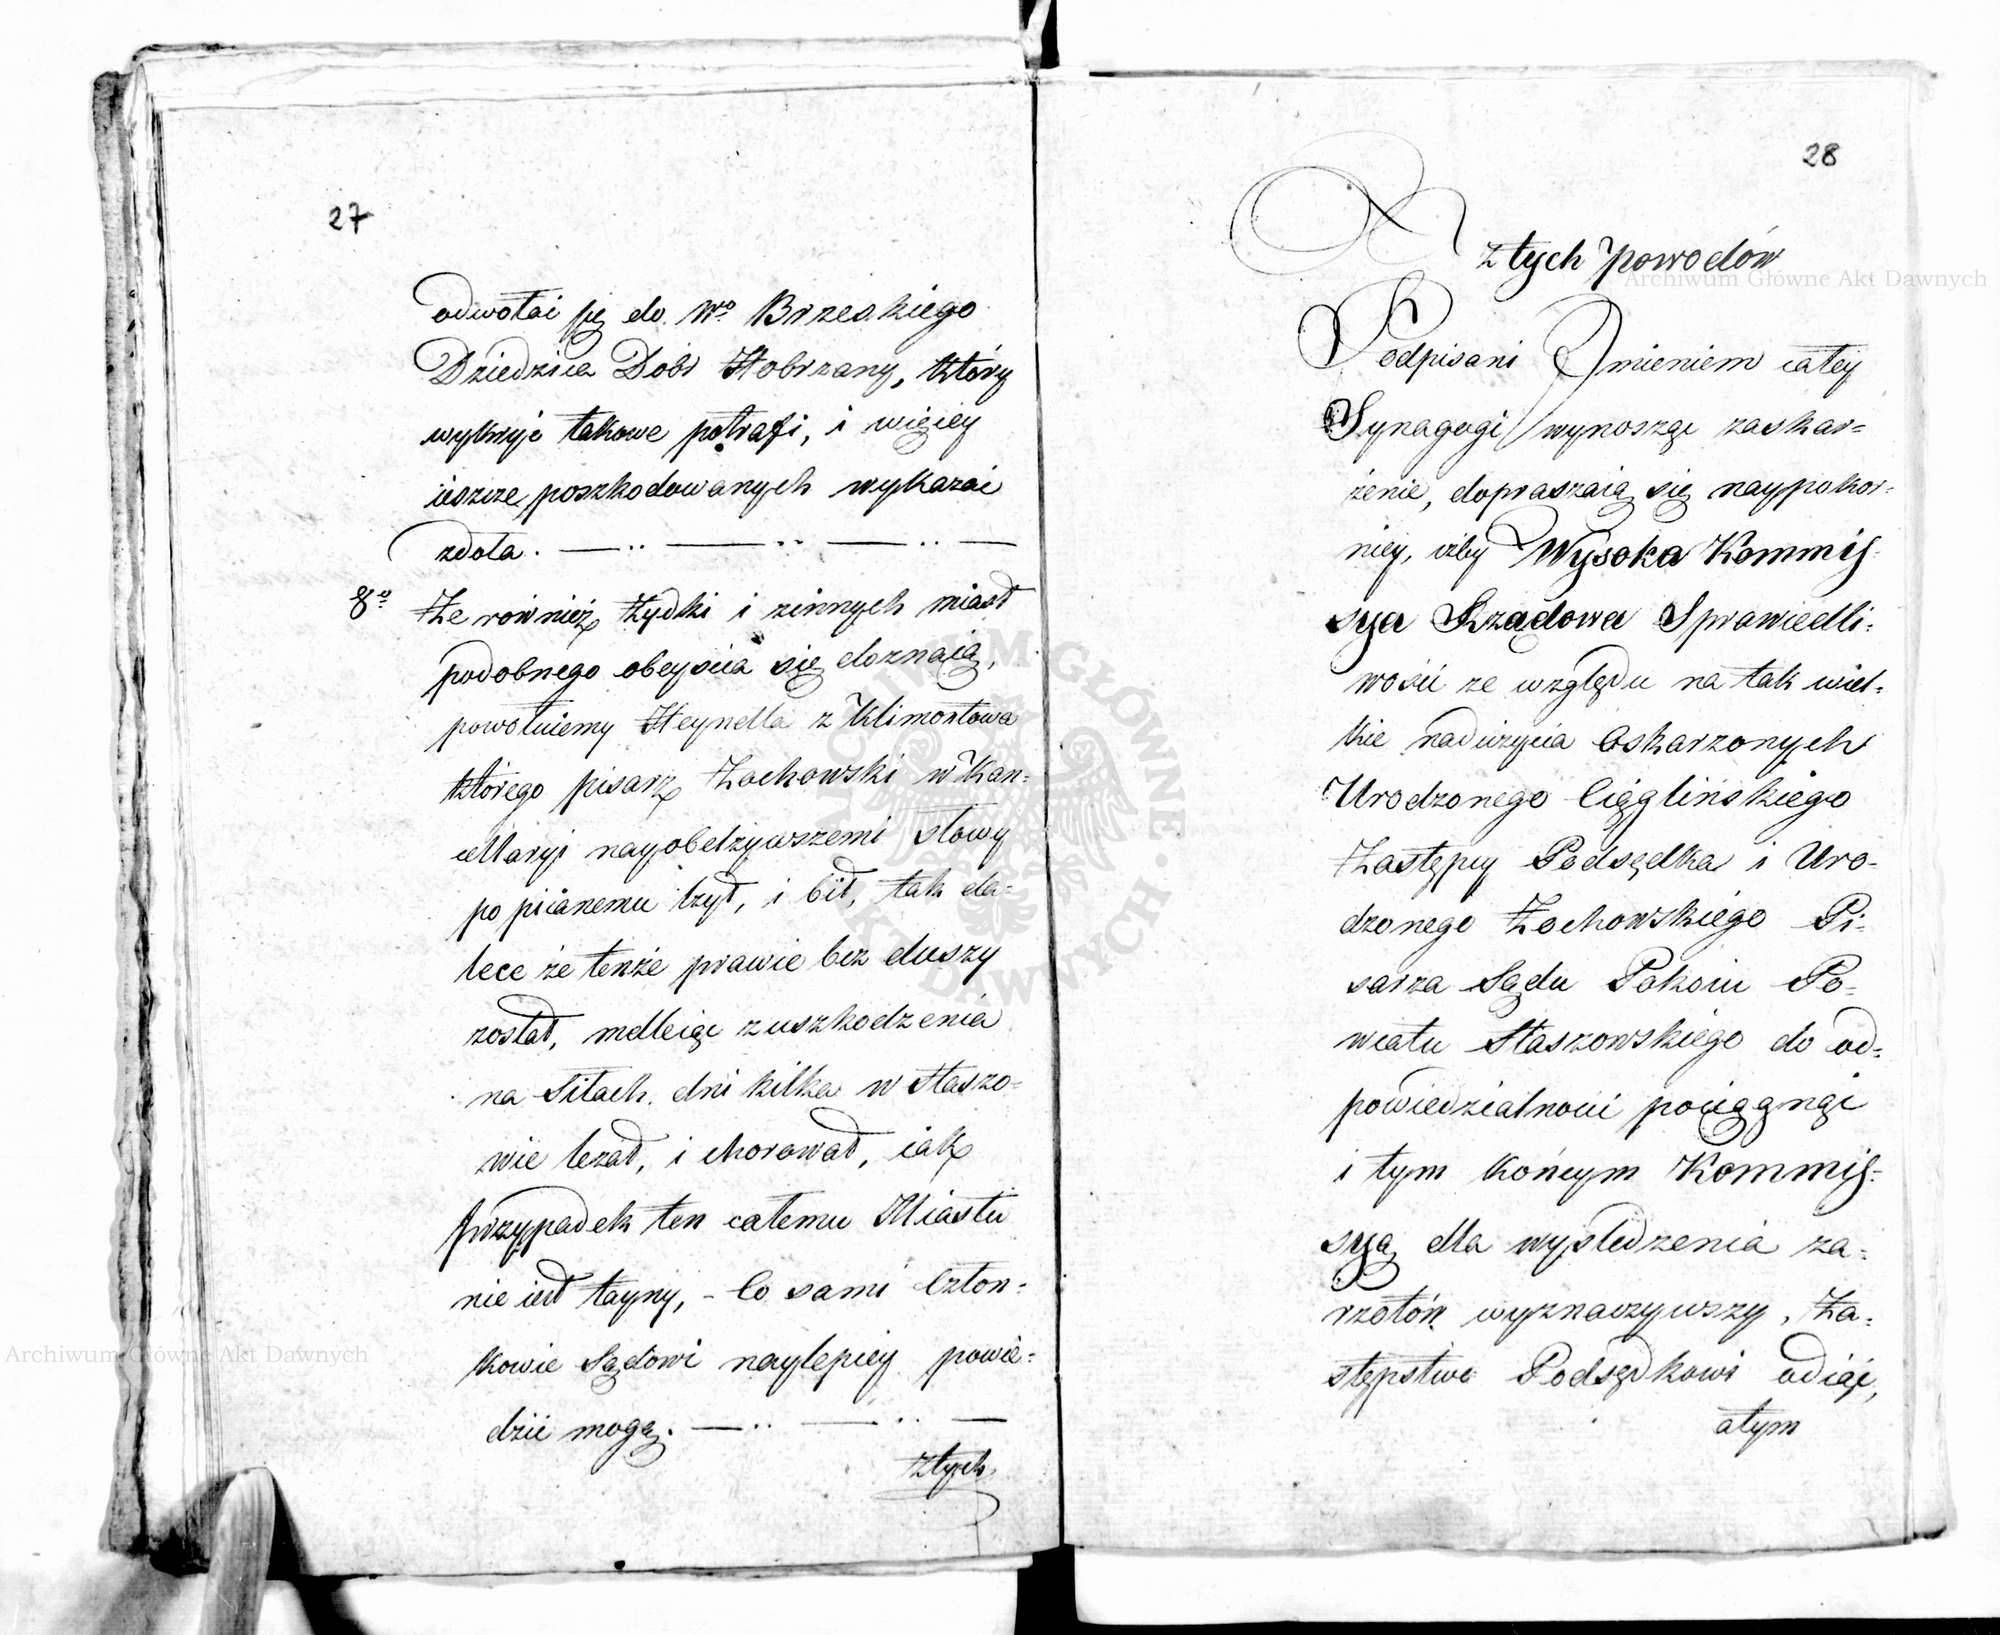 27
odwołać się do Wo Brzeskiego
Dziedzica Dóbr Hobrzany, który
wykryć takowe potrafi, i więcey
ieszcze poszkodowanych wykazać
zdoła. — .. — .. — .. —
8o Że również Żydki i zinnych miast
podobnego obeyścia się doznaią,
powołuiemy Heynella z Klimontowa
którego pisarz Żochowski w Kan-
cellaryi nayobelżywszemi słowy
po piianemu lżył, i bił, tak da-
lece że tenże prawie bez duszy
został, mdleiąc z uszkodzenia
na Siłach. dni kilka w Staszo-
wie leżał, i chorował, iak
przypadek ten całemu Miastu
nie iest tayny, - Co sami Człon-
kowie Sądowi naylepiey powie-
dzieć mogą. — .. — .. —
ztych
28
z tych powodów
Podpisani Imieniem całey
Synagogi wynosząc zaskar-
żenie, dopraszaią się naypokor-
niey, iżby Wysoka Kommis-
sya Rządowa Sprawiedli-
wości ze względu na tak wiel-
kie nadużycia Oskarzonych
Urodzonego Ciąglińskiego
Zastępcy Podsędka i Uro-
dzonego Żochowskiego Pi-
sarza Sądu Pokoiu Po-
wiatu Staszowskiego do od-
powiedzialności pociągnąć
i tym końcym Kommis-
syą dla wyśledzenia za-
rzotów wyznaczywszy, Za-
stępstwo Podsędkowi odiąć,
atym
Archiwum Główne Akt Dawnych
Archiwum Główne Akt Dawnych
ARCHIWUM GŁÓWNE AKT DAWNYCH